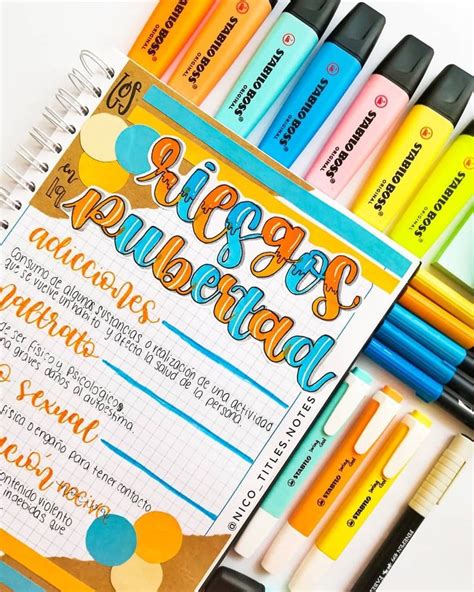 Los
riesgos
en la
pubertad
adicciones
Consumo de algunas sustancias o realización de una actividad
que se vuelve un habito y afecta la salud de la persona.
maltrato
de ser físico y psicológico,
una graves daños al autoestima
o sexual
física o engaño para tener contacto
ción nociva
contenido violento
inaebidas que
@NICO_TITLES.NOTES
STABILO BOSS
ORIGINAL
STABILO BOSS
ORIGINAL
STABILO BOSS
ORIGINAL
STABILO BOSS
ORIGINAL
STABILO BOSS
ORIGINAL
STABILO BOSS
ORIGINAL
STABILO
swing cool
STABILO
swing cool
STABILO
swing cool